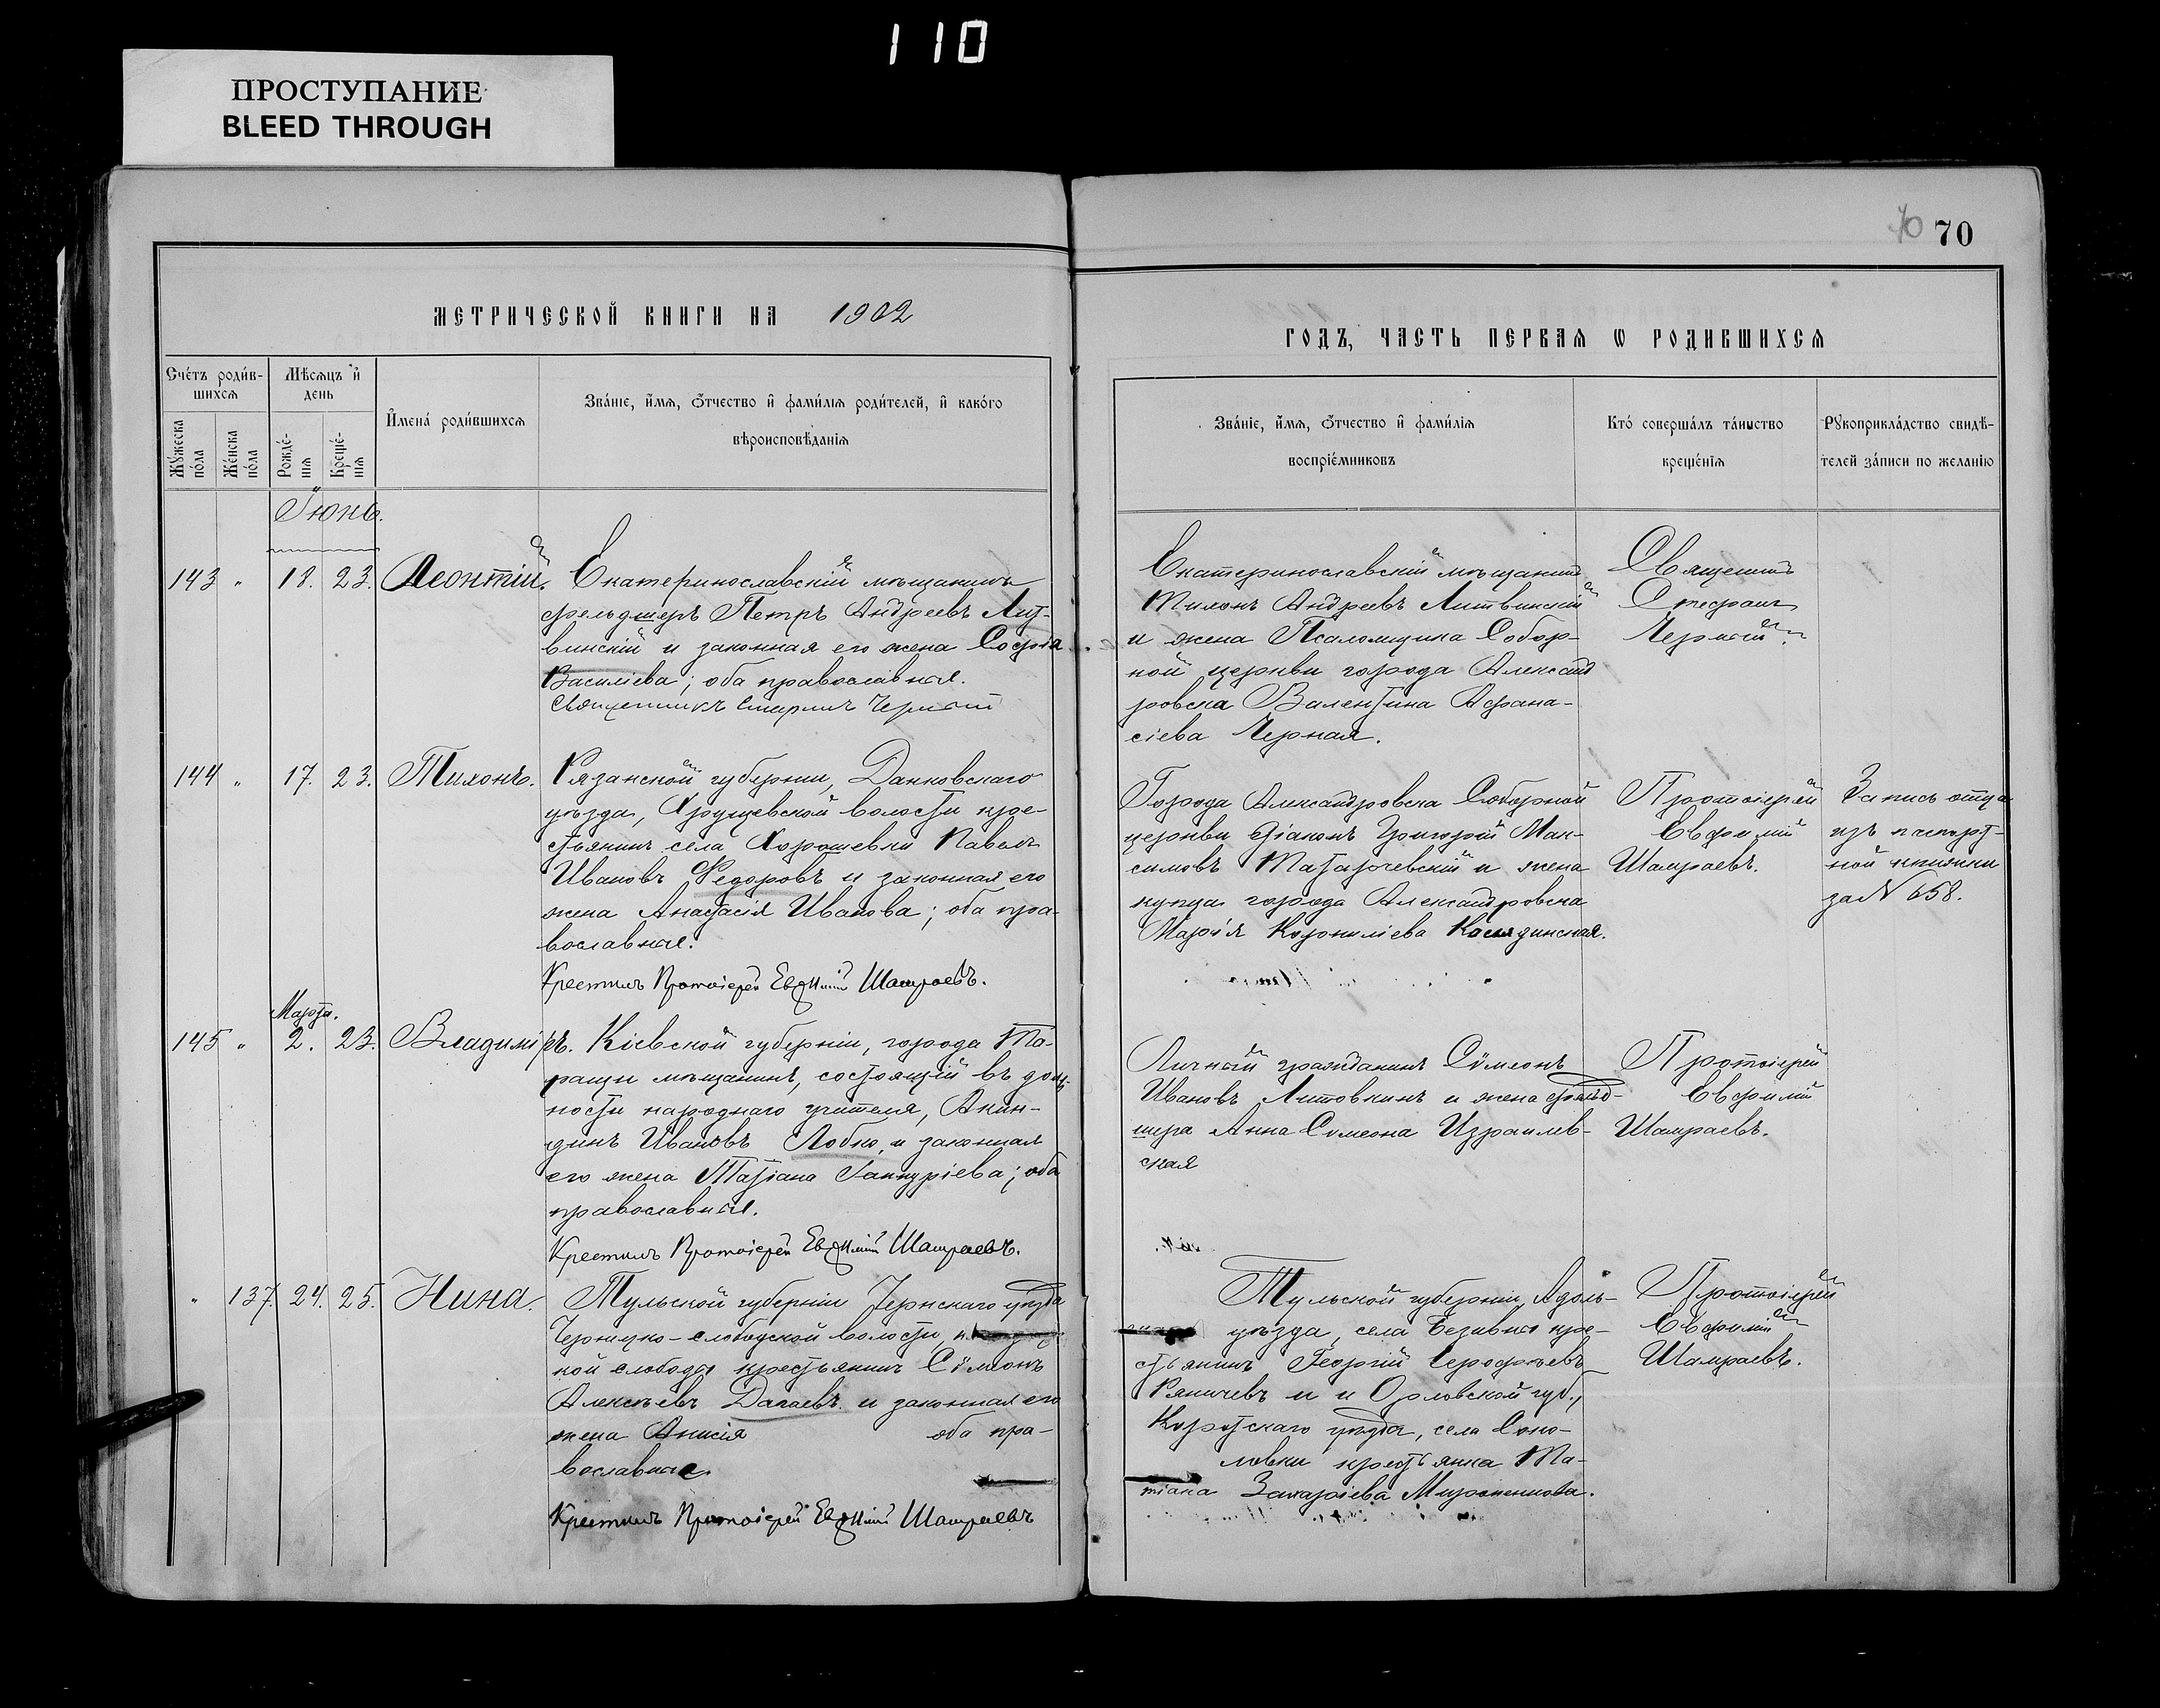 110
ПРОСТУПАНИЕ
BLEED THROUGH
70
70
МЕТРИЧЕСКОЙ КНИГИ НА 1902
ГОДЪ, ЧАСТЬ ПЕРВАЯ Ѡ РОДИВШИХСЯ
Счетъ родив-
шихся
Мѣсяцъ и
день
Имена родившихся
Званіе, имя, отчество и фамилія родителей, и какого
вѣроисповѣданія
Мужеска
пола
Женска
пола
Рожде-
нія
Креще-
нія
Званіе, имя, отчество и фамилія
воспріемниковъ
Кто совершалъ таинство
крещенія
Рукоприкладство свидѣ-
телей записи по желанію
Іюнь.
143 " 18. 23. Леонтій.
Екатеринославскій мѣщанинъ
фельдшеръ Петръ Андреевъ Лит-
винскій и законная его жена Софія
Василіева; оба православные.
Священникъ Черный
Екатеринославскій мѣщанинъ
Тихонъ Андреевъ Литвинскій
и жена Псаломщика Собор-
ной церкви города Александ
ровска Валентина Афана-
сіева Черная.
Священникъ
Стефанъ
Черный
144 " 17. 23. Тихонъ.
Рязанской губерніи, Данковскаго
уѣзда, Хрущевской волости кре-
стьянинъ села Хорошевки Павелъ
Ивановъ Федоровъ и законная его
жена Анастасія Иванова; оба пра-
вославные.
Крестилъ Протоіерей Евфимій Шамраевъ.
Города Александровска Соборной
церкви діаконъ Григорій Мак-
симовъ Татарчевскій и жена
купца города Александровска
Марія Корниліева
Протоіерей
Евфимій
Шамраевъ.
Запись отца
изъ паспорт-
ной книжки
за № 658.
Марта.
145 " 2. 23. Владиміръ.
Кіевской губерніи, города Та-
ращи мѣщанинъ, состоящій въ долж-
ности народнаго учителя, Акин-
динъ Ивановъ Лобко, и законная
его жена Татіана; оба
православные.
Крестилъ Протоіерей Евфимій Шамраевъ.
Личный гражданинъ Сѵмеонъ
Ивановъ Литовкинъ и жена фельд-
шера Анна Сѵмеона Израилев-
ская
Протоіерей
Евфимій
Шамраевъ.
" 137. 24. 25. Нина.
Тульской губерніи Чернскаго уѣзда
слободской волости,
ной слободы крестьянинъ Сѵмеонъ
Алексѣевъ Дагаевъ и законная его
жена Анисія оба пра-
вославные.
Крестилъ Протоіерей Евфимій Шамраевъ
Тульской губерніи,
уѣзда, села кре-
стьянинъ Георгій
и Орловской губ.,
уѣзда, села Соко-
ловки крестьянка Та-
тіана Захаріева Мироненкова.
Протоіерей
Евфимій
Шамраевъ.